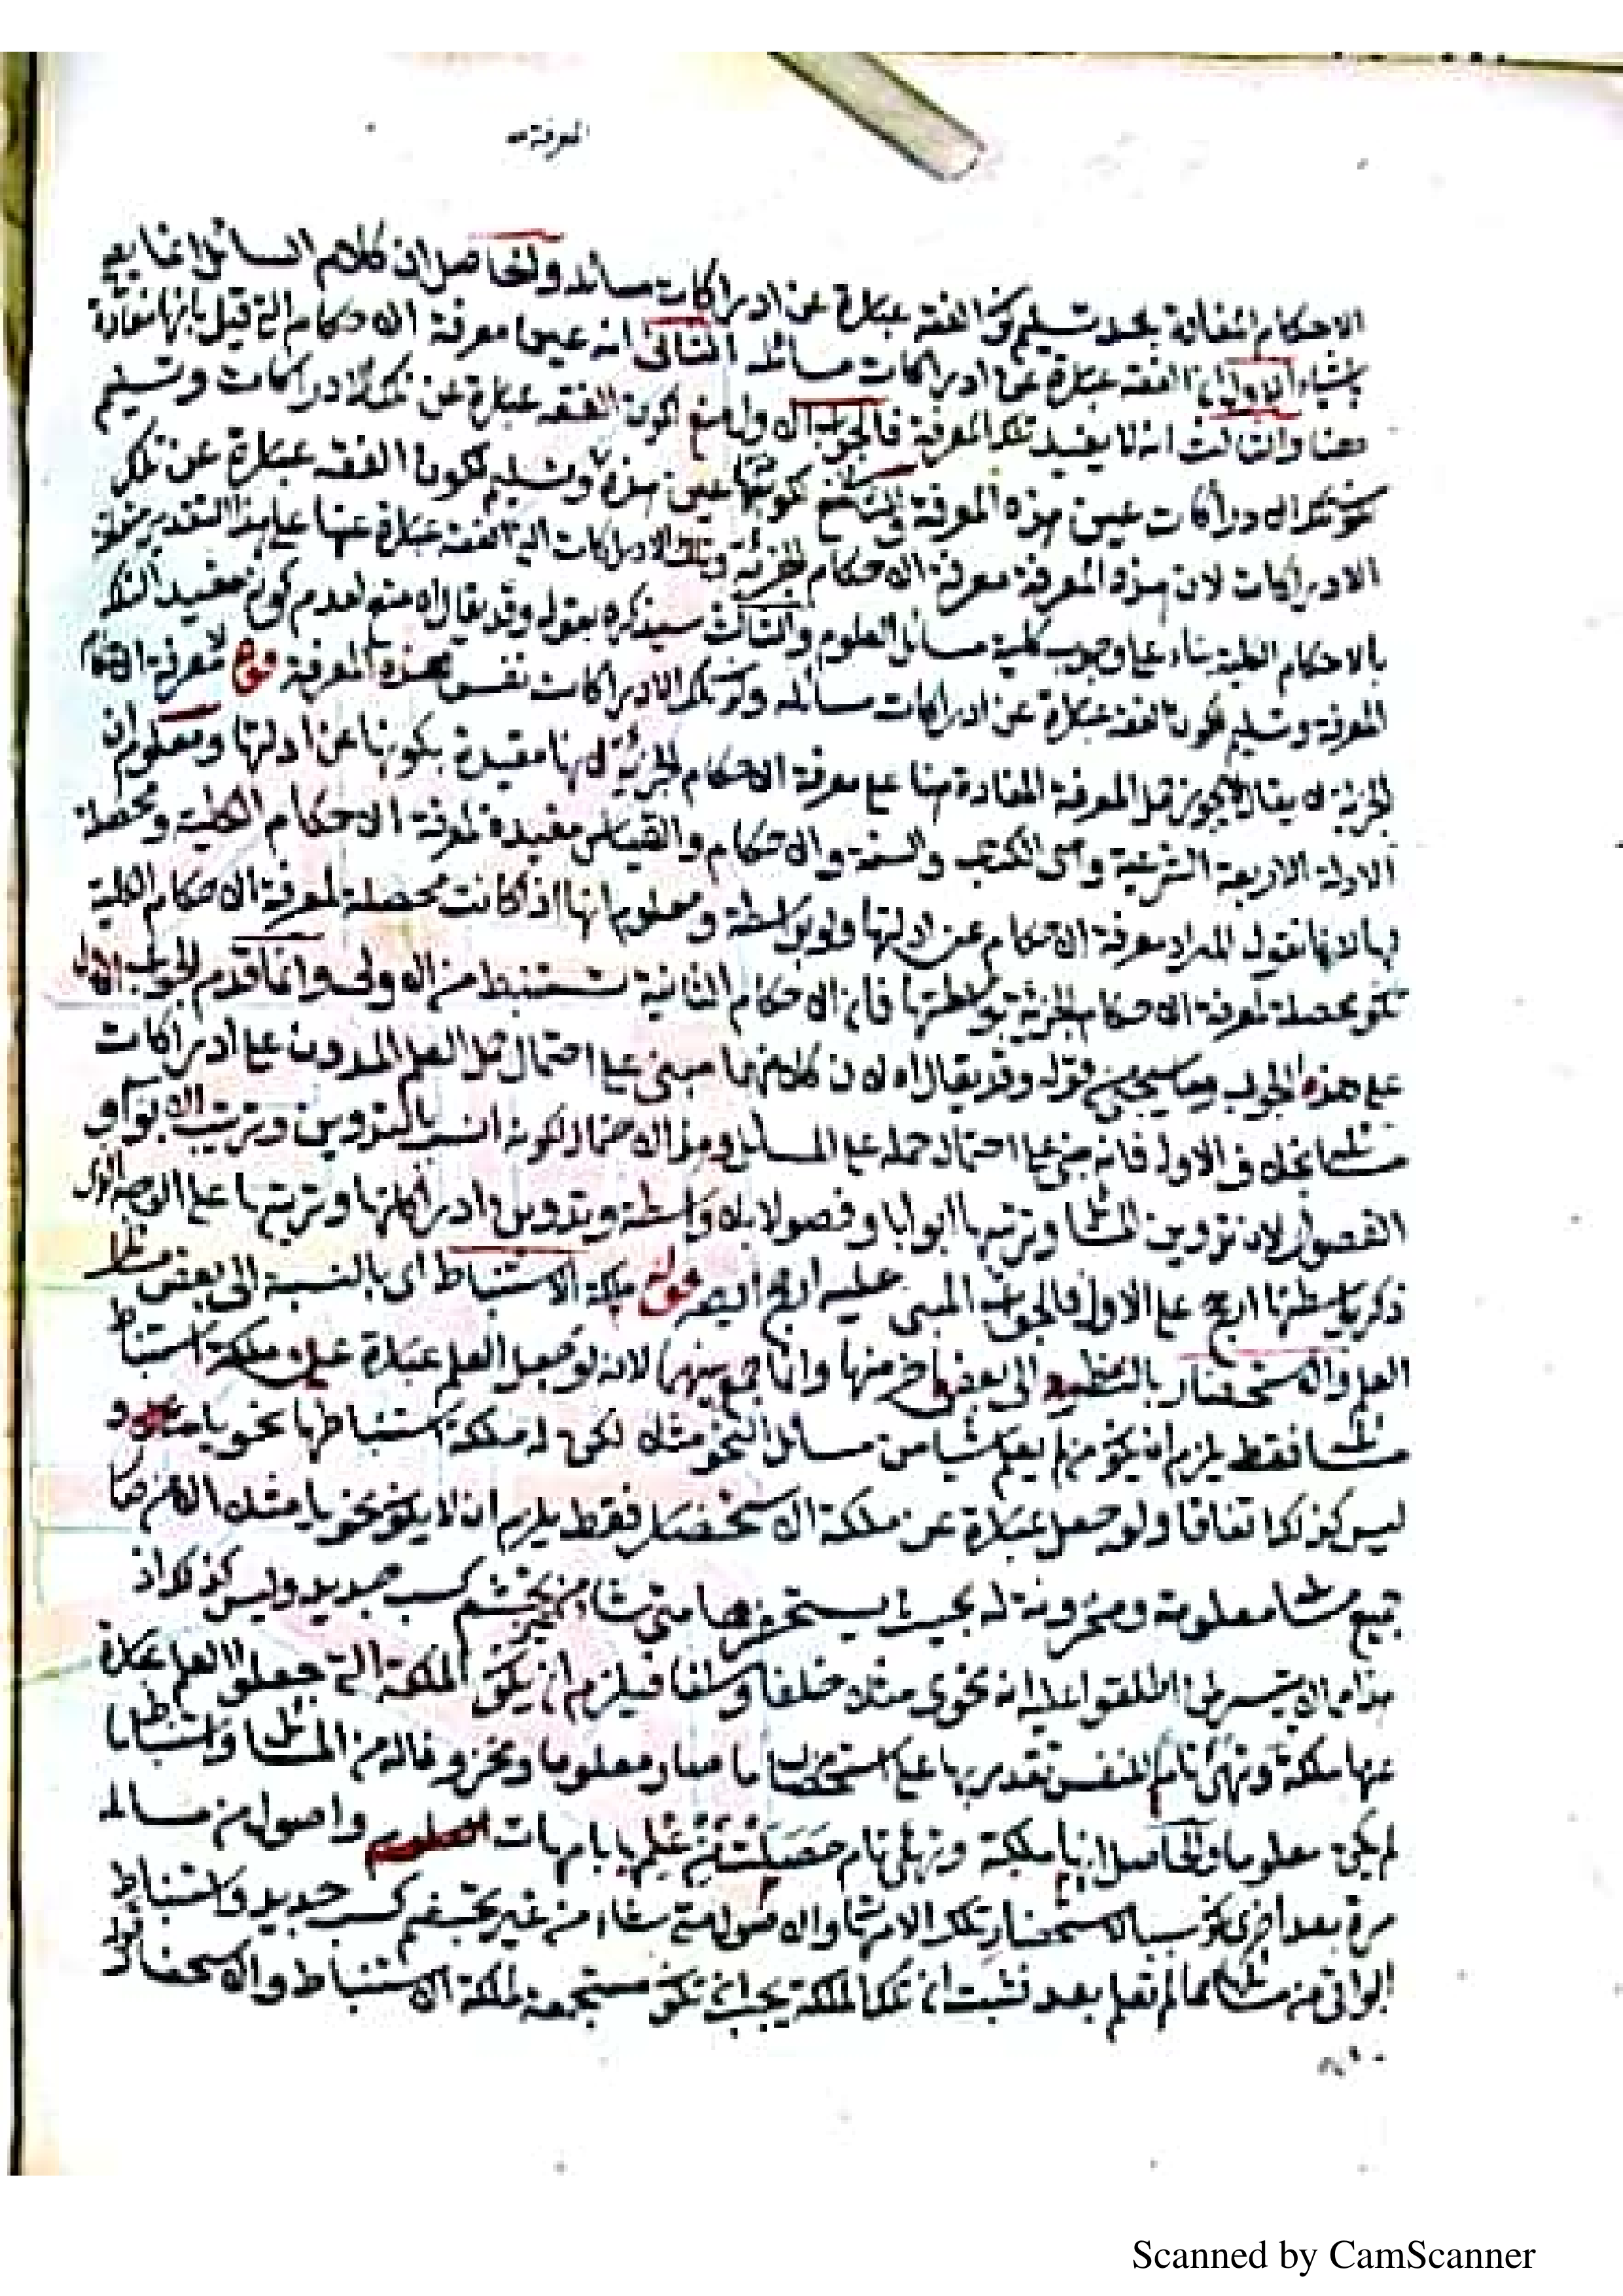 المعرفة
الاحكام المفادة بعد تسليم كون الفقه عبارة عن ادراكات مسائله والحاصل ان كلام السائل انما يتم
الاول ان الفقه عبارة عن ادراكات مسائله الثانى انه عين معرفة الاحكام التى قيل بانها مفادة
والثالث انه لا يفيد تلك المعرفة فالجواب الاول منع كون الفقه عبارة عن تلك الادراكات وتسليم
كون تلك الادراكات عين هذه المعرفة كونها عين هذه وتسليم كون الفقه عبارة عن تلك
الادراكات لان هذه المعرفة معرفة الاحكام الجزئية وتلك الادراكات التى الفقه عبارة عنها على هذا التقدير متعلقة
بالاحكام الكلية بناء على وجوب كلية مسائل العلوم والثالث سيذكره بقوله وقد يقال اه منع لعدم كونه مفيد التلك
المعرفة وتسليم كون الفقه عبارة عن ادراكات مسائله وكون تلك الادراكات نفس هذه المعرفة قوله لمعرفة الاحكام
الجزئية لا يقال لا يجوز حمل المعرفة المفادة هنا على معرفة الاحكام الجزئية لانها مقيدة بكونها عن ادلتها ومعلوم ان
الادلة الاربعة الشرعية وهى الكتاب والسنة والاحكام والقياس مفيدة لمعرفة الاحكام الكلية ومحصلة
لها لانا نقول المراد معرفة الاحكام عن ادلتها ولو بواسطة ومعلوم انها اذا كانت محصلة لمعرفة الاحكام الكلية
تكون محصلة لمعرفة الاحكام الجزئية بواسطتها فان الاحكام الثانية تستنبط من الاولى وانما قدم الجواب الاول
على هذه الجواب وما سيجئ من قوله وقد يقال اه لان كلا منهما مبنى على احتمال حمل العلم المدون على ادراكات
بخلاف الاول فانه مبنى على احتمال حمله على المسائل وهذا الاحتمال لكونه انسب بالتدوين وترتيب الابواب و
الفصول لان تدوين المسائل وترتيبها ابوابا وفصولا بلا واسطة وتدوين ادراكاتها وترتيبها على الوجه الذى
ذكر بواسطتها ارجح على الاول فالجواب المبنى عليه ارجح ايضا قوله ملكة الاستنباط اى بالنسبة الى بعض مسائل
العلم والاستحضار بالنظر الى بعض اخر منها وانما جمع بينهما لانه لو جعل العلم عبارة عن ملكة استنباط
مسائله فقط يلزم ان يكون من لم يعلم شيئا من مسائل النحو مثلا لكن له ملكة استنباطها نحويا و
ليس كذلك اتفاقا ولو جعل عبارة عن ملكة الاستحضار فقط يلزم ان لا يكون نحويا مثلا الا من صار
جميع مسائله معلومة ومخزونة له بحيث يستحضرها متى شاء من غير تجشم كسب جديد وليس كذلك اذ
هذا مما لا يتيسر اطلقوا عليه انه نحوى مثلا خلفا وسلفا فيلزم ان يكون الملكة التى جعلوا العلم عبارة
عنها ملكة وتهيئ تام للنفس تقدر بها على استحضار ما صار معلوما ومخزونا له من المسائل واستنباط ما
لم يكن معلوما والحاصل انها ملكة وتهيئ تام حصلت من علم بامهات واصول من مسائله
مرة بعد اخرى تكون سببا لاستحضار تلك الامهات والاصول متى شاء من غير تجشم كسب جديد واستنباط
البواقى من مسائله مما لم تعلم بعد فثبت ان تلك الملكة يجب ان تكون مستجمعة لملكة الاستنباط والاستحضار
Scanned by CamScanner